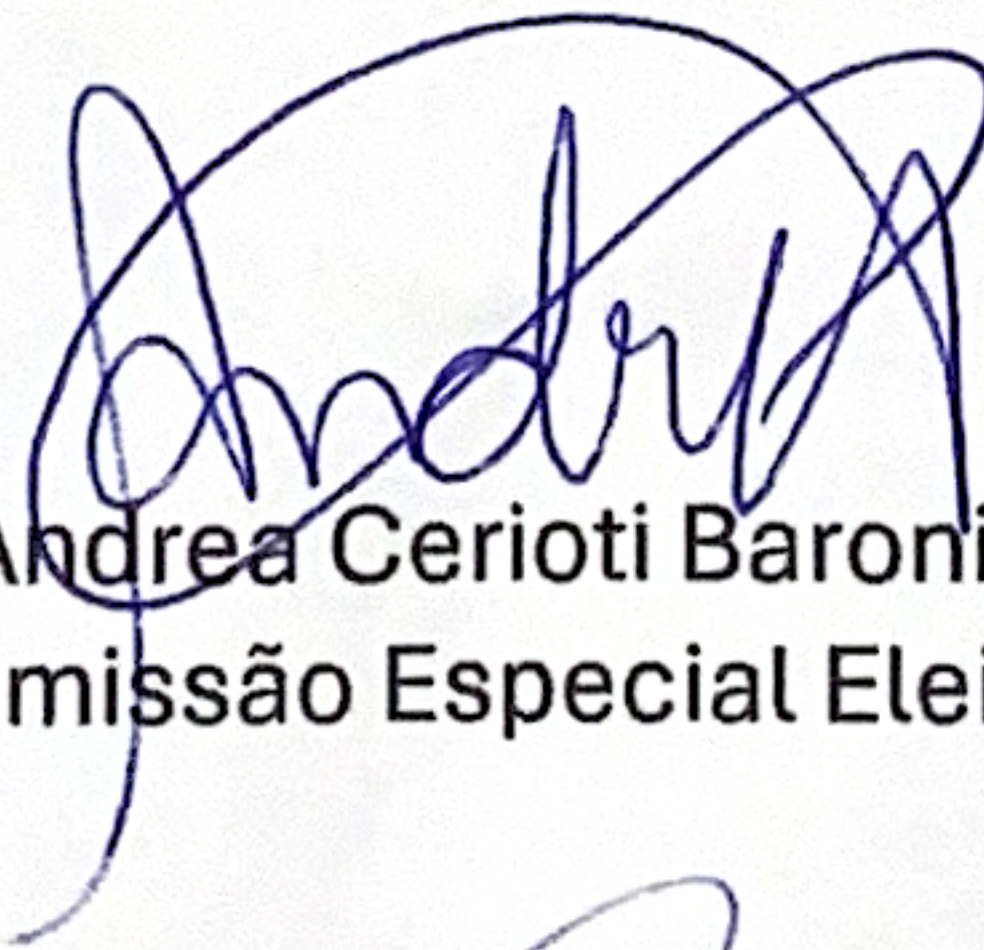 Andrea Cerioti Baroni
missão Especial Elei